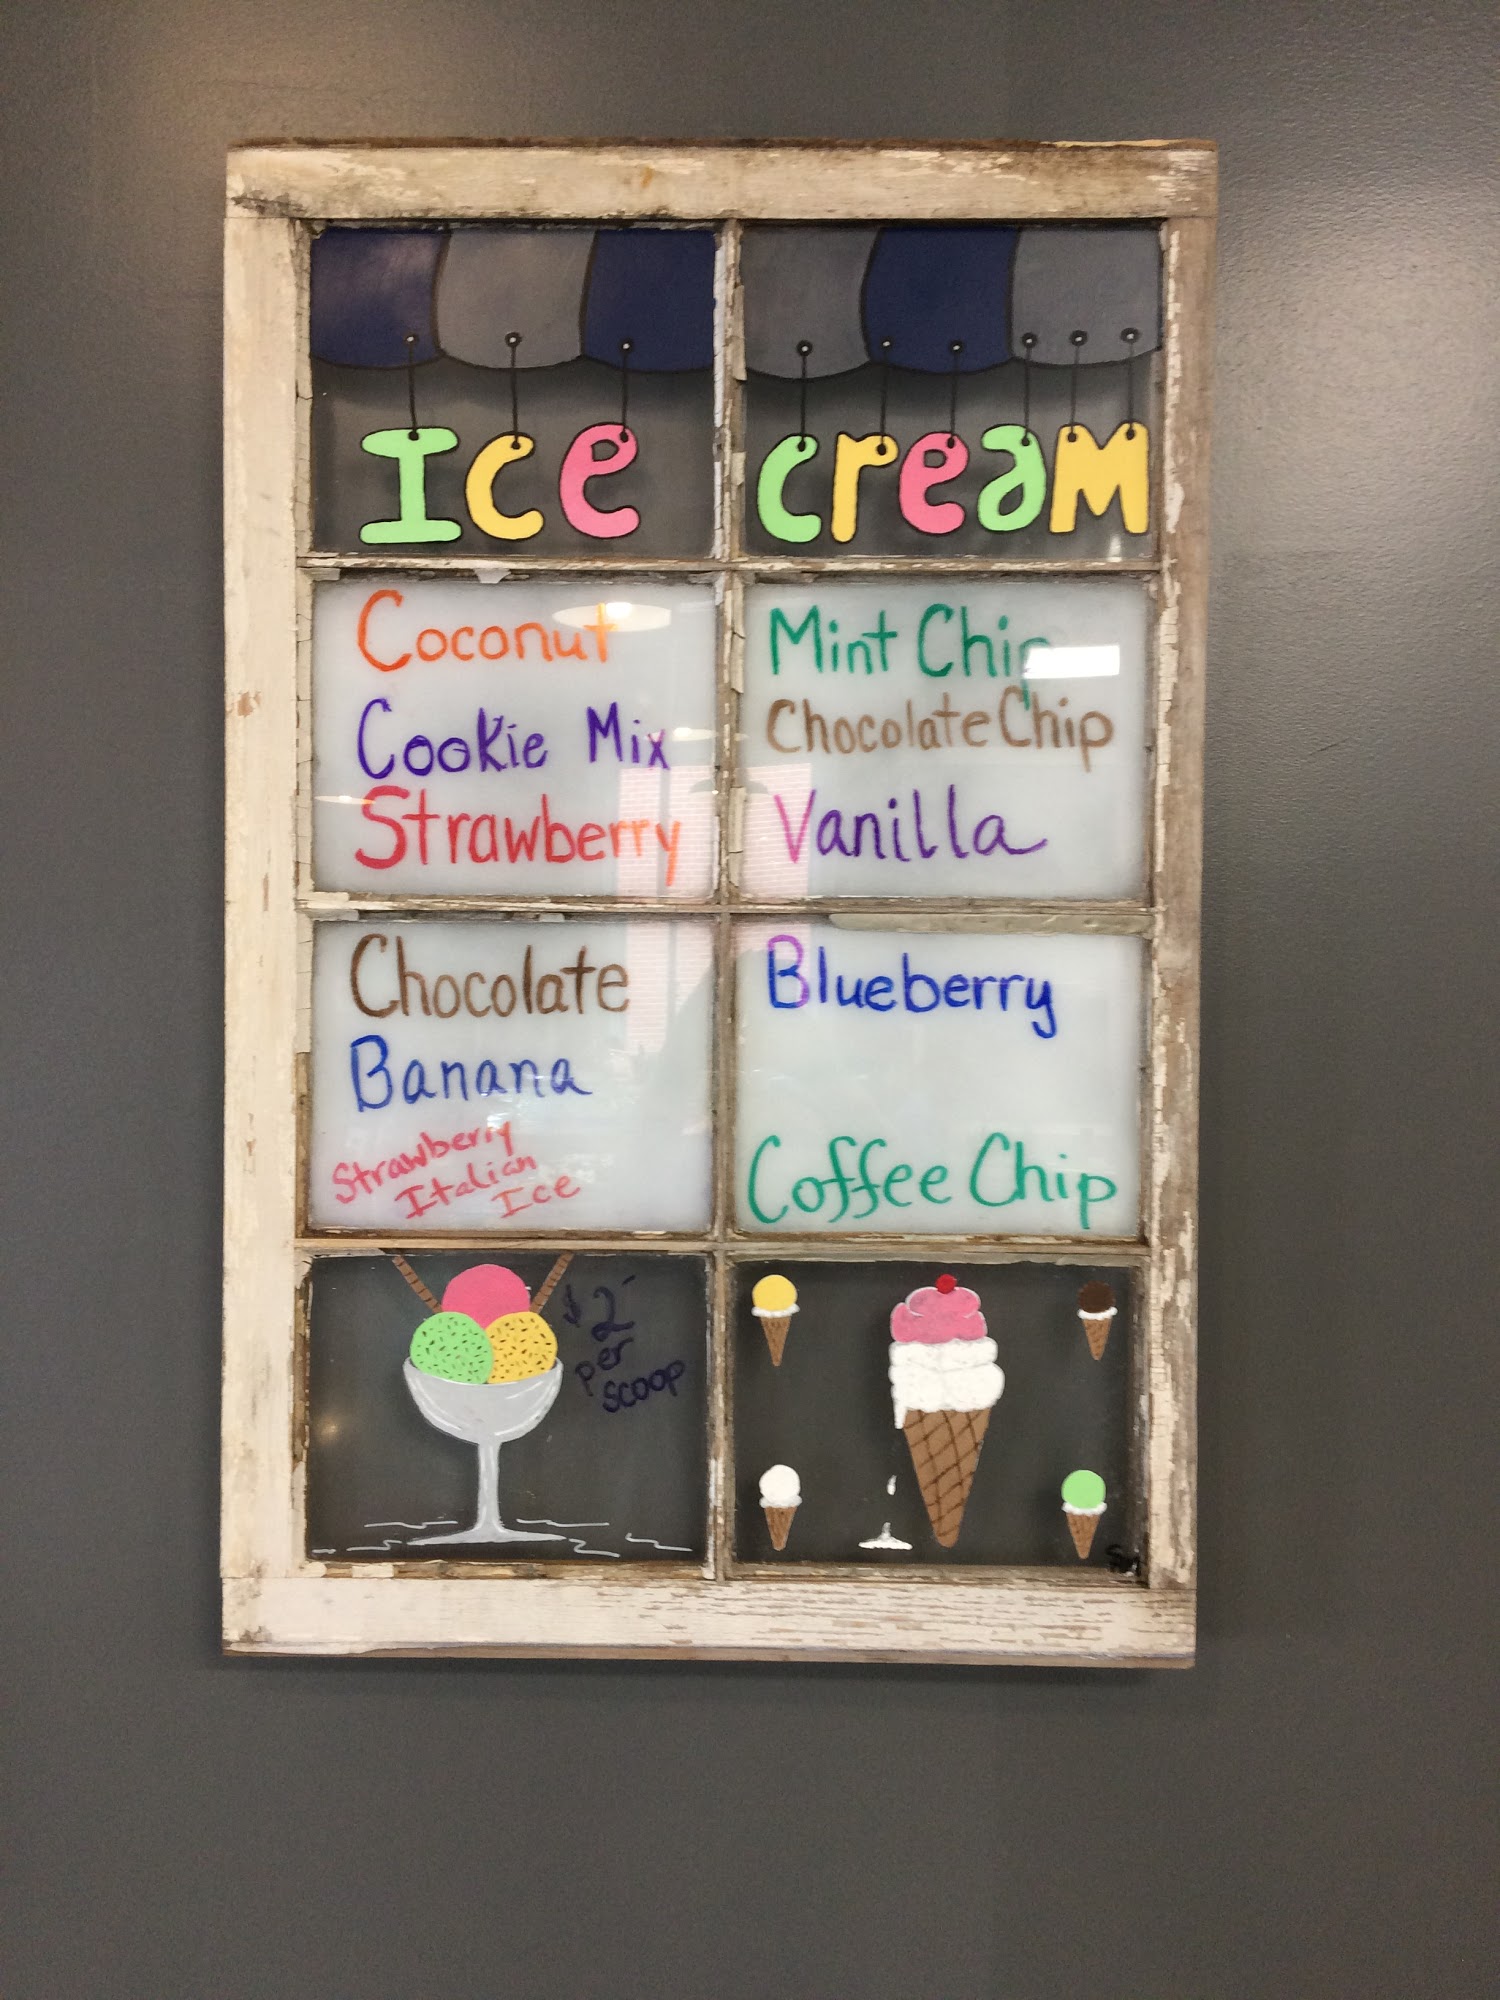 Ice cream
Coconut
Cookie Mix
Strawberry
Mint Chip
Chocolate Chip
Vanilla
Chocolate
Banana
Strawberry
Italian
Ice
Blueberry
Coffee Chip
$2-
per
scoop